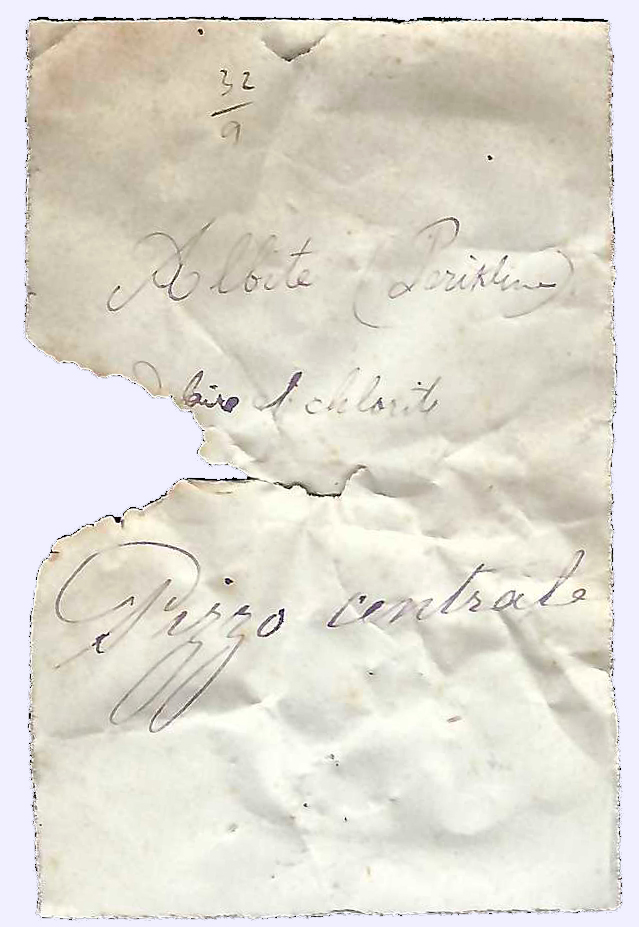 32
9
Albite (Perikline)
& chlorite
Pizzo centrale